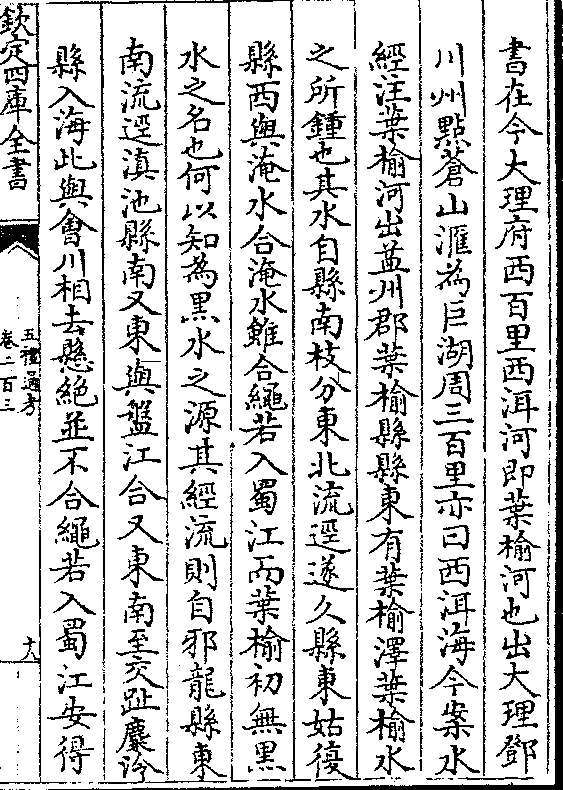 書在今大理府西百里西洱河即葉榆河也出大理鄧
川州點蒼山滙為巨湖周三百里亦曰西洱海今案水
經注葉榆河出益州郡葉榆縣縣東有葉榆澤葉榆水
之所鍾也其水自縣南枝分東北流逕遂久縣東姑復
縣西與淹水合淹水雖合繩若入蜀江而葉榆初無黑
水之名也何以知為黑水之源其經流則自邪龍縣東
南流逕滇池縣南又東與盤江合又東南至交趾麊泠
縣入海此與會川相去懸絶並不合繩若入蜀江安得
欽定四庫全書
五禮通考
卷二百三
十八